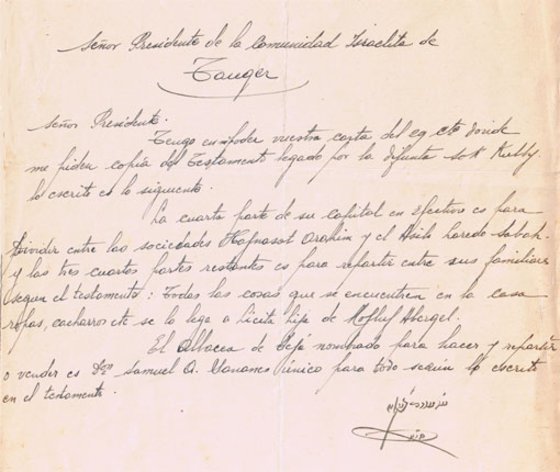 Señor Presidente de la Comunidad Israelita de
Tanger
Señor Presidente.
Tengo en mi poder vuestra carta del eq cte donde
me piden copia del Testamento legado por la difunta Sok Kubby
lo escrito es lo siguiente.
La cuarta parte de su capital en efectivo es para
dividir entre las sociedades Hafnasat Orahim y el Asilo Laredo-Sabah-
y las tres cuartas partes restantes es para repartir entre sus familiares
segun el testamento: Todas las cosas que se encuentren en la casa
ropas, cacharros etc se lo lega a Licita hija de Mofluf Abergel.
El Albacea de dejó nominado para hacer y repartir
o vender es Dn Samuel A. unico para todo según lo escrito
en el testamento.